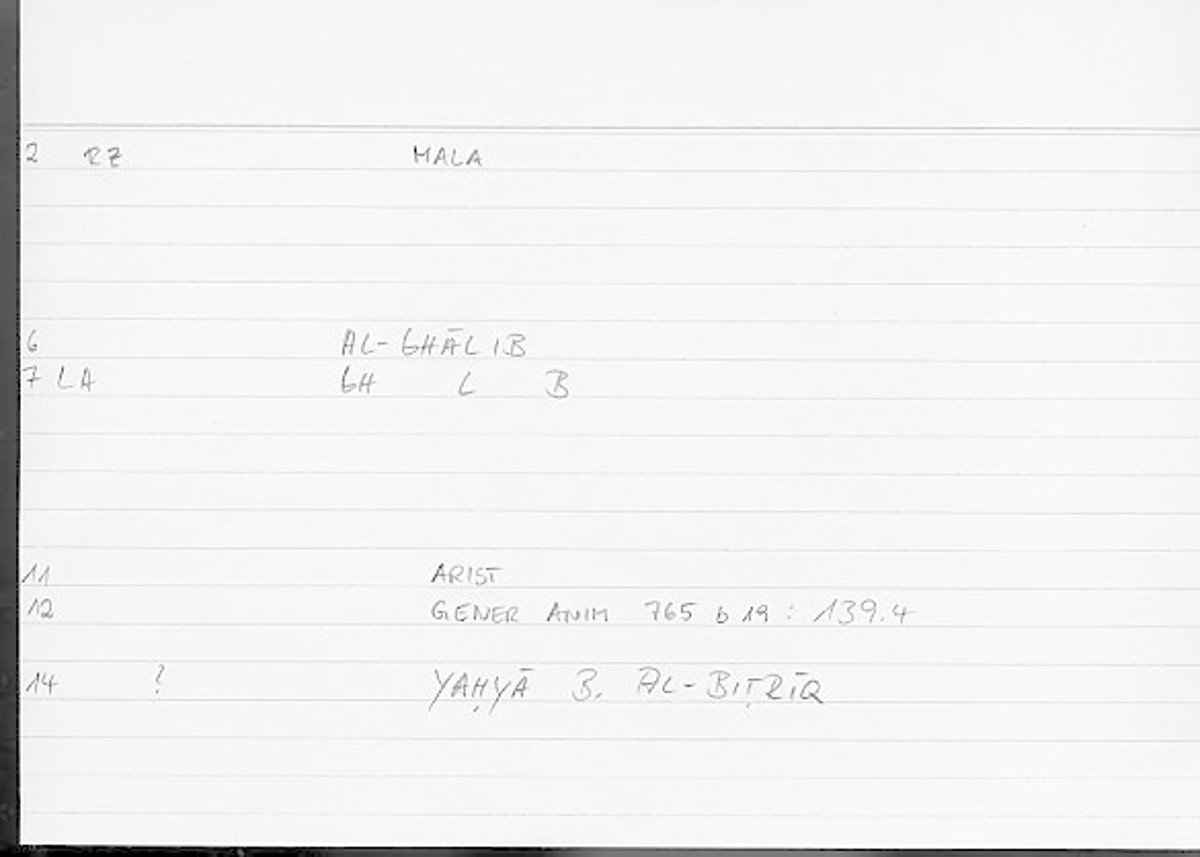 2 RZ MALA
6 AL-GHĀLIB
7 LA GH L B
11 ARIST
12 GENER ANIM 765 b 19 : 139.4
14 ? YAḤYĀ B. AL-BIṬRĪQ